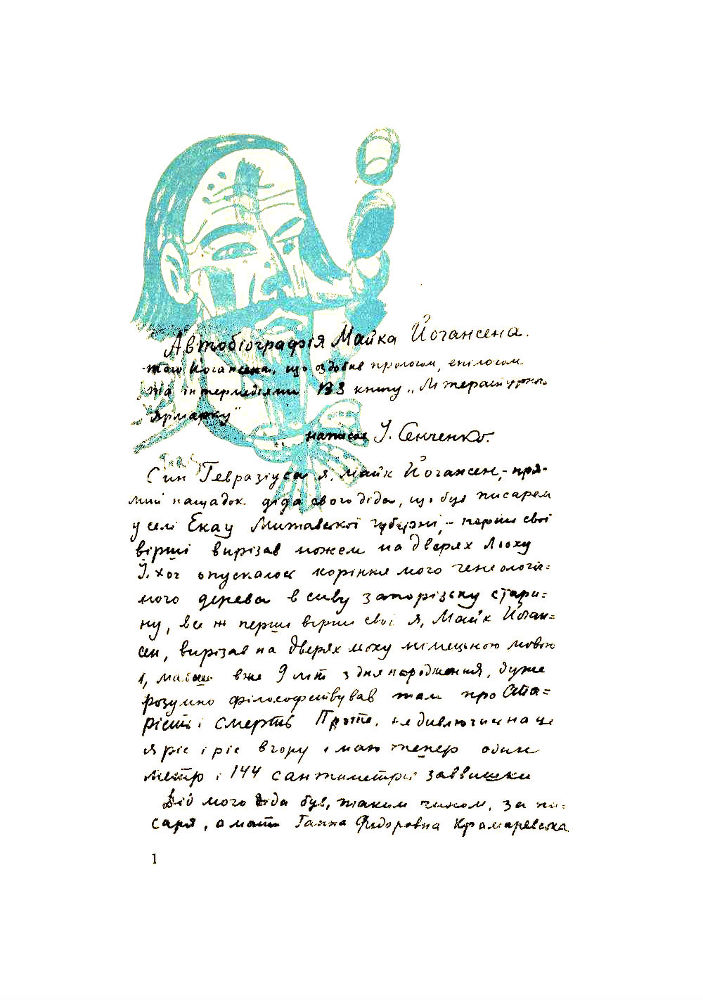 Автобіографія Майка Йогансена.
того Йогансена, що оздобив прологом, епілогом
та інтермедіями 133 книгу „Літературного
Ярмарку"
написав І. Сенченко.
Син Гервазіуса я, Майк Йогансен, – пря-
мий нащадок діда свого діда, що був писарем
у селі Екау Митавської губерні, – перші свої
вірші вирізав ножем на дверях льоху
І, хоч опускалось коріння мого генеологіч-
ного дерева в сиву запорізьку стари-
ну, все ж перші вірші свої я, Майк Йоган-
сен, вирізав на дверях льоху німецькою мовою
і, мавши вже 9 літ з дня народження, дуже
розумно філософствував там про Ста-
рість і Смерть Проте, не дивлючись на це
я ріс і ріс вгору і маю тепер один
метр і 144 сантиметри заввишки
Дід мого діда був, таким чином, за пи-
саря, а мати Ганна Федоровна Крамаревська
1